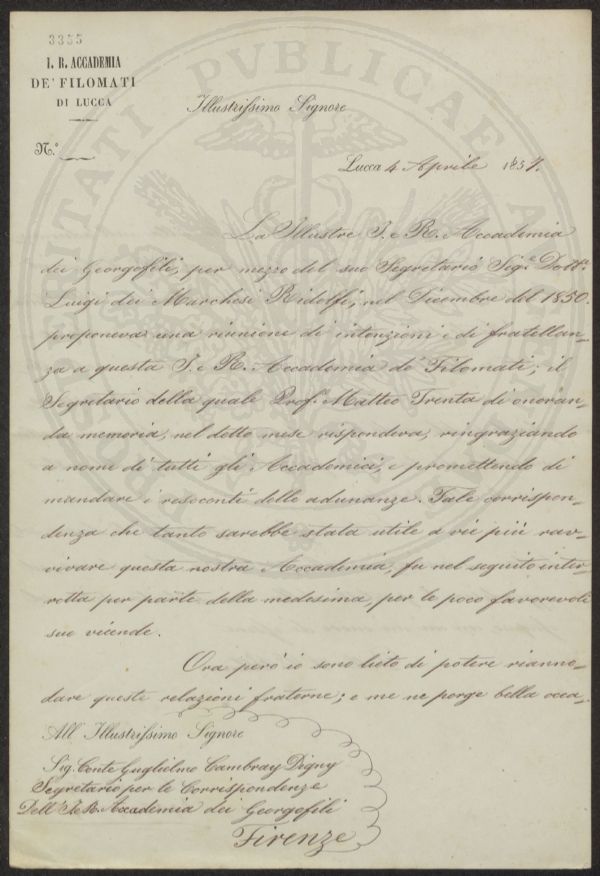 3355
I. R. ACCADEMIA
DE' FILOMATI
DI LUCCA
N.°
Illustrissimo Signore
Lucca 4 Aprile 1857.
La Illustre I. e R. Accademia
dei Georgofili, per mezzo del suo Segretario Sig.e Dott.e
Luigi dei Marchesi Ridolfi, nel Dicembre del 1850.
proponeva una riunione di intenzioni e di fratellan-
za a questa I. e R. Accademia de' Filomati; il
Segretario della quale Prof.e Matteo Trenta di onoran-
da memoria, nel detto mese rispondeva, ringraziando
a nome di tutti gli Accademici, e promettendo di
mandare i resoconti delle adunanze. Tale corrispon-
denza che tanto sarebbe stata utile a vie più rav-
vivare questa nostra Accademia, fu nel seguito inter-
rotta per parte della medesima, per le poco favorevoli
sue vicende.
Ora però io sono lieto di potere rianno-
dare queste relazioni fraterne; e me ne porge bella occa-
All' Illustrissimo Signore
Sig. Conte Guglielmo Cambray Digny
Segretario per le Corrispondenze
Dell' I. e R. Accademia dei Georgofili
Firenze